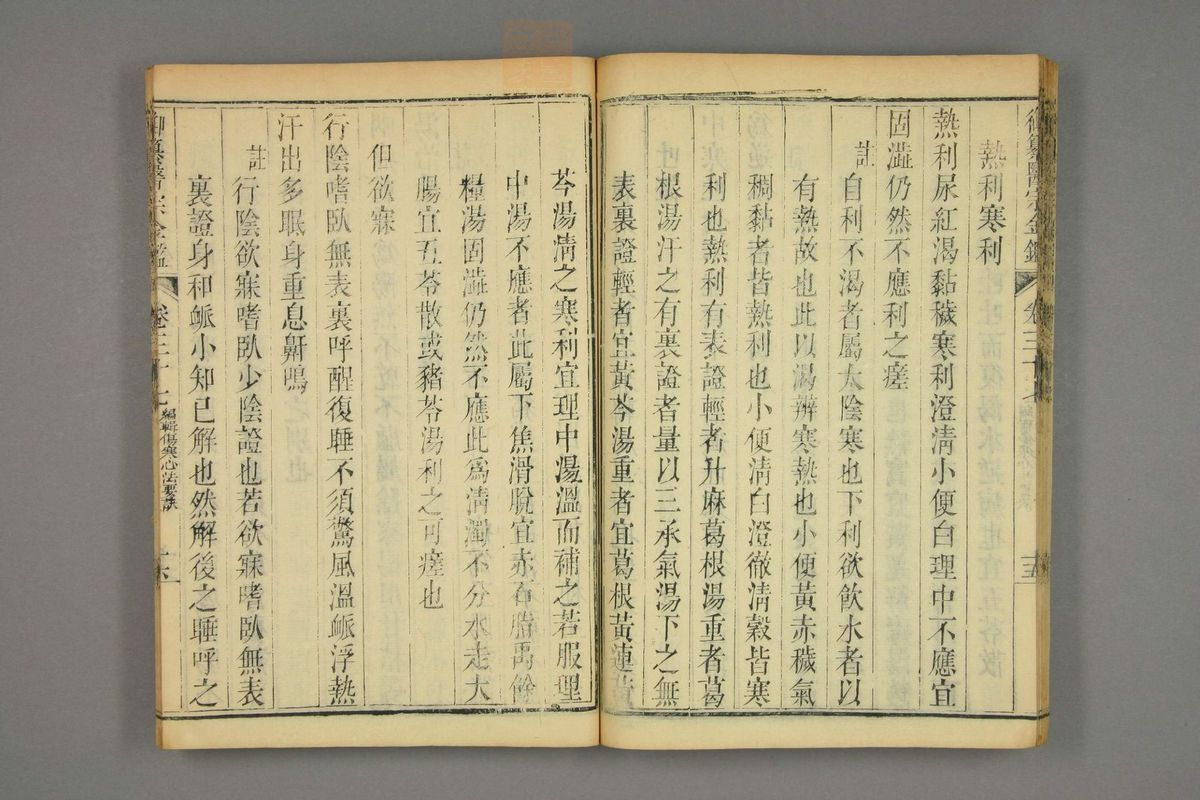 熱利寒利
熱利尿紅渴黏穢寒利澄清小便白理中不應宜
固澁仍然不應利之瘥
註自利不渴者屬太陰寒也下利欲飲水者以
有熱故也此以渴辨寒熱也小便黃赤穢氣
稠黏者皆熱利也小便清白澄徹清穀皆寒
利也熱利有表證輕者升麻葛根湯重者葛
根湯汗之有裏證者量以三承氣湯下之無
表裏證輕者宜黃芩湯重者宜葛根黃連黃
芩湯清之寒利宜理中湯溫而補之若服理
中湯不應者此屬下焦滑脫宜赤石脂禹餘
糧湯固澁仍然不應此爲清濁不分水走大
腸宜五苓散或豬苓湯利之可瘥也
但欲寐
行陰嗜臥無表裏呼醒復睡不須驚風溫脈浮熱
汗出多眠身重息鼾鳴
註行陰欲寐嗜臥少陰證也若欲寐嗜臥無表
裏證身和脈小知已解也然解後之睡呼之
御纂醫宗金鑑 卷三十七 編輯傷寒心法要訣